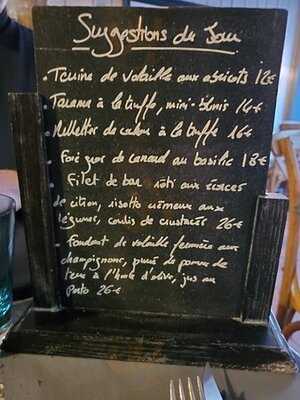 Suggestions du Jour
• Terrine de volaille aux abricots 12€
• Tarama à la truffe, mini-blinis 14€
• à la truffe 16€
• Foie gras de canard au basilic 18€
• Filet de bar rôti aux écorces
de citron, risotto crémeux aux
légumes, coulis de crustacés 26€
• Fondant de volaille fermière aux
champignons, purée de pomme de
terre à l'huile d'olive, jus au
Porto 26€